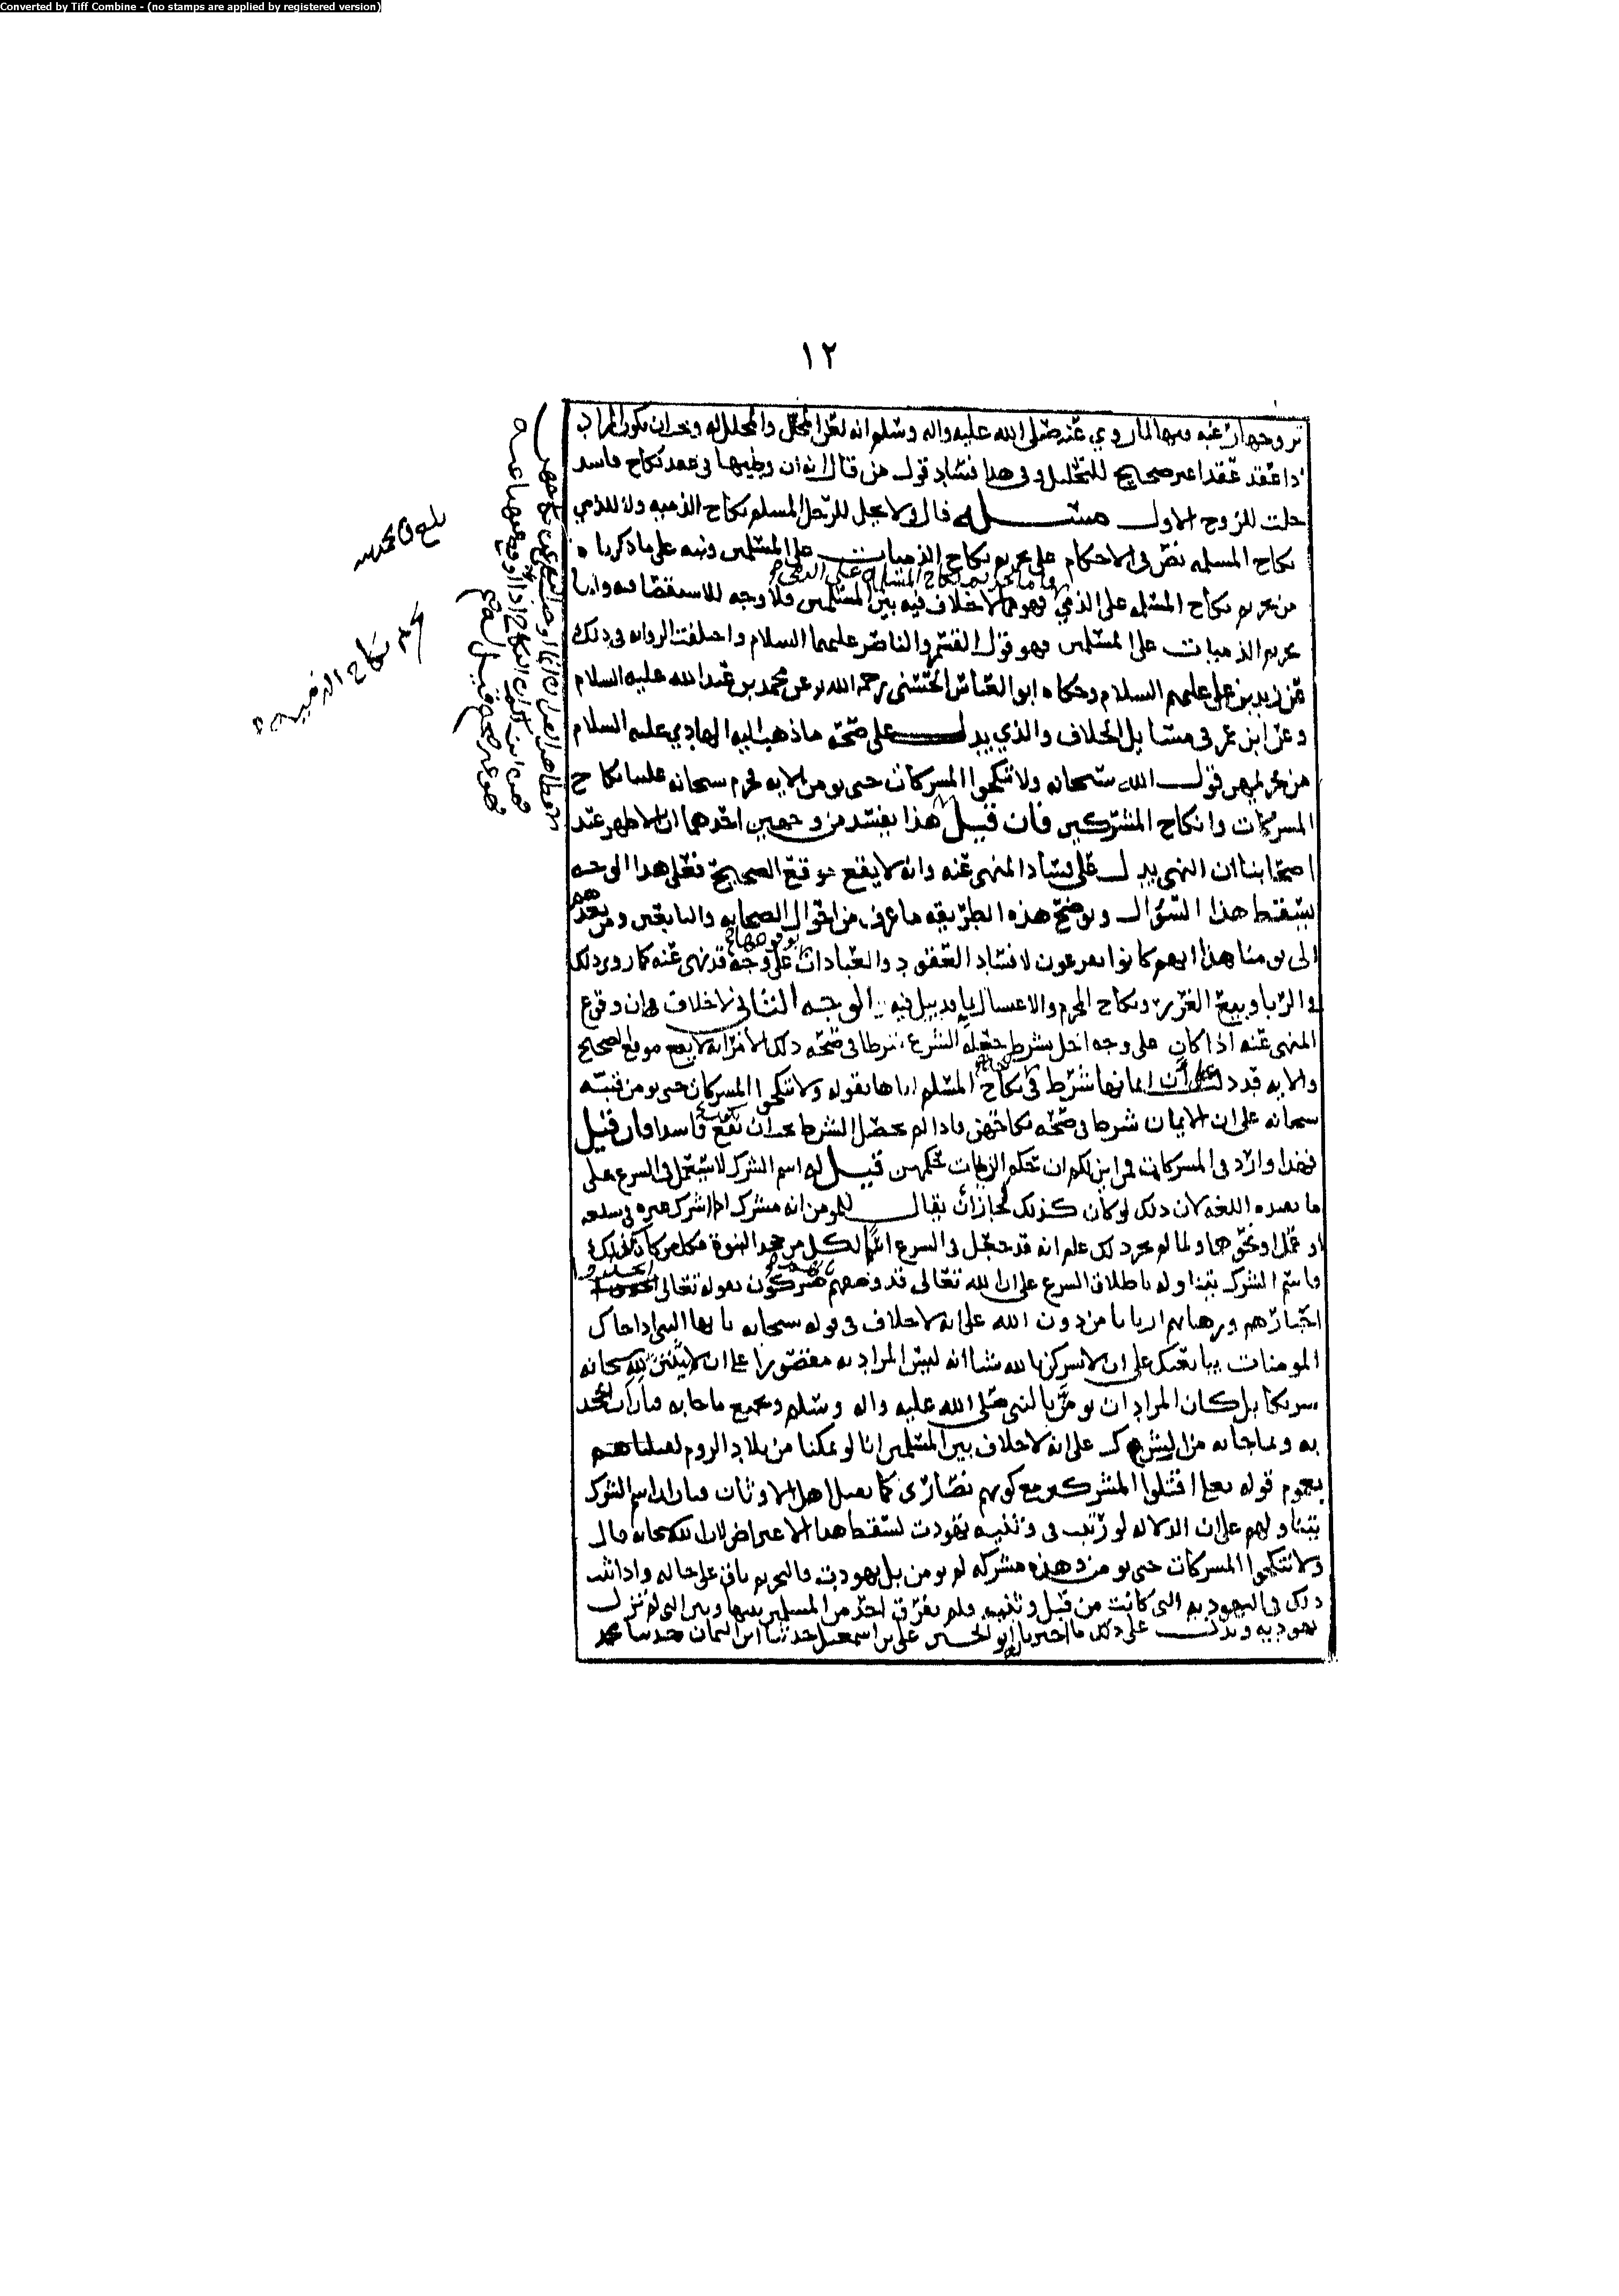 Converted by Tiff Combine - (no stamps are applied by registered version)
١٢
عنه صلى الله عليه واله وسلم انه لعن المحلل والمحلل له
عقد عقدا غير صحيح للتحليل وفي هذا فساد قول من قال انه ان وطيها في عقد نكاح فاسد
حلت للزوج الاول مسئلة قال ولا يحل للرجل المسلم نكاح الذمية ولا للذمي
نكاح المسلمه نص في الاحكام على تحريم نكاح الذميات على المسلمين ونبه على ما ذكرناه
من تحريم نكاح المسلمه على الذمي فهو مما لا خلاف فيه بين المسلمين فلا وجه للاستقصا فيه واما
تحريم الذميات على المسلمين فهو قول القسم والناصر عليهما السلام واختلفت الروايه في ذلك
عن زيد بن علي عليهم السلام وحكاه ابو العباس الحسني رحمه الله عن محمد بن عبدالله عليه السلام
وعن ابن عمر في مسايل الخلاف والذي يدل على صحة ما ذهب اليه الهادي عليه السلام
من تحريمهن قول الله سبحانه ولا تنكحوا المشركات حتى يومن الايه فحرم سبحانه علينا نكاح
المشركات وانكاح المشركين فان قيل هذا يفسد من وجهين احدهما ان الاظهر عند
اصحابنا ان النهي يدل على فساد المنهي عنه وانه لا يقع موقع الصحيح فعلى هذا الوجه
يسقط هذا السؤال ويوضح هذه الطريقه ما عرف من اقوال الصحابه والتابعين ومن بعدهم
الى يومنا هذا انهم كانوا يفزعون لافساد العقود والعبادات على وجه قد نهي عنه كما روي ذلك
والربا وبيع الغرر ونكاح المحرم والاغتسال الوجه الثاني لا خلاف فيه ان وقوع
المنهي عنه اذا كان على وجه اخل بشرط جعله الشرع شرطا في صحة ذلك الامر انه لا يقع موقع الصحيح
والايه قد دلت على ان ايمانها شرط في نكاح المسلم اياها بقوله ولا تنكحوا المشركات حتى يومن فنبه
سبحانه على ان الايمان شرط في صحة نكاحهن فاذا لم يحصل الشرط يجب ان يقع فاسدا فان قيل
فهذا وارد في المشركات فمن اين لكم ان حكم الذميات حكمهن قيل له اسم الشرك لا يستعمل في الشرع على
ما يفيده اللغه لان ذلك لو كان كذلك لجاز ان يقال للمومن انه مشرك اذا اشرك غيره في سلعه
او عمل او نحوها ولما لم يجز ذلك علم انه قد جعل في الشرع اسما لكل من جحد النبوة فكل من كان كذلك
فاسم الشرك يتناوله باطلاق الشرع على ان الله تعالى قد وصفهم بانهم مشركون بقوله تعالى اتخذوا
احبارهم ورهبانهم اربابا من دون الله على انه لا خلاف في قوله سبحانه يا ايها النبي اذا جاك
المومنات يبايعنك على ان لا يشركن بالله شيا انه ليس المراد به مقصورا على ان لا يثبتن لله سبحانه
شريكا بل كان المراد ان يومن بالنبي صلى الله عليه واله وسلم وبجميع ما جا به
به وبما جا به من الشرك على انه لا خلاف بين المسلمين انا لو تمكنا من بلاد الروم لقتلناهم
بعموم قوله تعالى اقتلوا المشركين مع كونهم نصارى كما نقتل اهل الاوثان فبان ان اسم الشرك
يتناولهم على ان الدلاله لو رتبت في وثنيه تهودت لسقط هذا الاعتراض لان الله سبحانه قال
ولا تنكحوا المشركات حتى يومن وهذه مشركه لم تومن بل تهودت فالتحريم باق على حاله واذا ثبت
ذلك في اليهوديه التي كانت من قبل وثنيه ولم يفرق احد من المسلمين بينها وبين التي لم تزل
يهوديه ويدل على ذلك ما اخبرنا ابو الحسين علي بن اسمعيل حدثنا ابن اليمان حدثنا محمد
نكاح الذميه